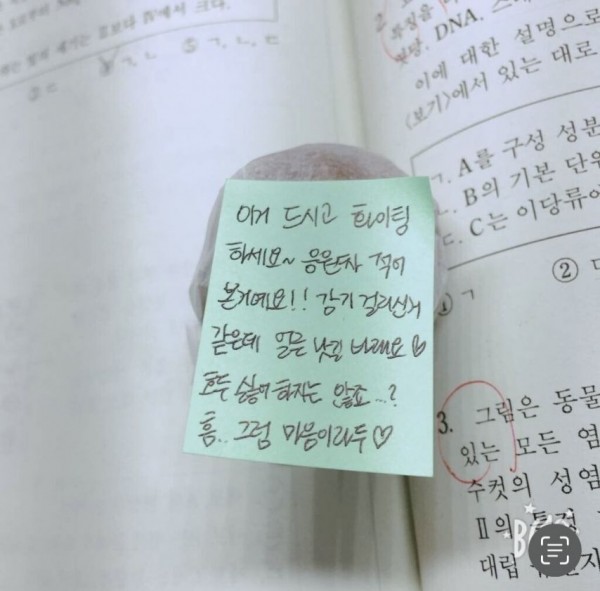 이거 드시고 화이팅
하세요~ 응원차 적어
본거예요!! 감기 걸리신거
같은데 얼른 낫길 바래요♡
호두 싫어 하지는 않죠...?
흠.. 그럼 마음이라두♡
ㄱ, ㄴ ⑤ ㄱ, ㄴ, ㄷ
2.
특징을
DNA.
이에 대한 설명으로
<보기>에서 있는 대로
ㄱ. A를 구성 성분
ㄴ. B의 기본 단위
ㄷ. C는 이당류이
① ㄱ ②
3. 그림은 동물
있는 모든 염
수컷의 성염
Ⅱ의 특정
대립